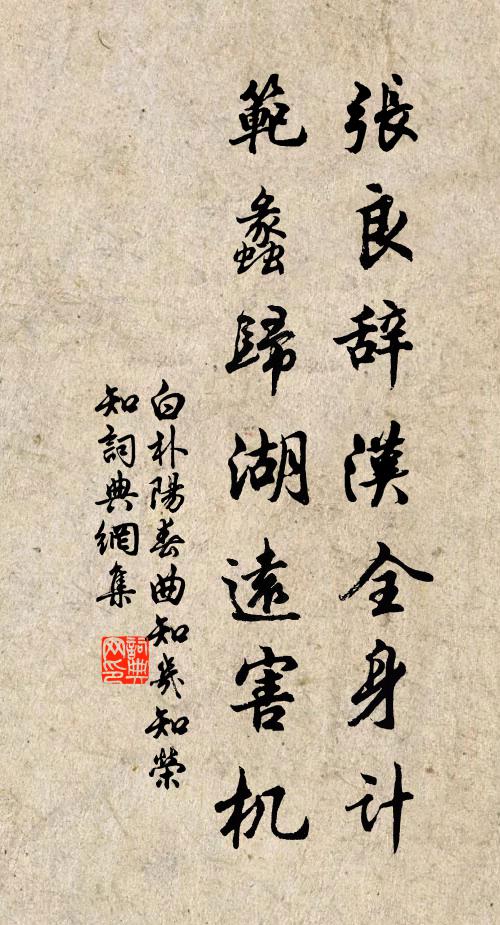 張良辞漢全身計
範蠡歸湖遠害机
白朴陽春曲知幾知榮
知詞典網集
詞典
网印